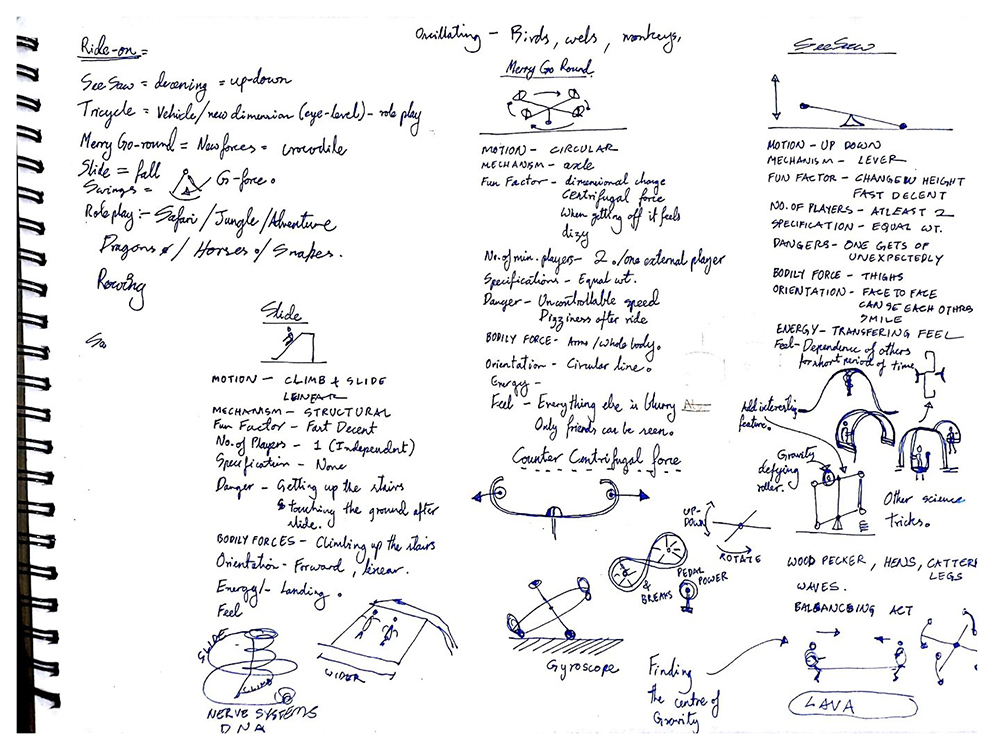 Ride-on =
See Saw = decening = up-down
Tricycle = Vehicle/new dimension (eye-level) - role play
Merry Go-round = New forces = crocodile
Slide = fall
Swings = G-force.
Role play :- Safari / Jungle / Adventure
Dragons / Horses / Snakes.
Rowing
Sa
Slide
MOTION - CLIMB + SLIDE
LENFAR
MECHANISM - STRUCTURAL
Fun Factor - Fast Decent
No. of Players - 1 (Independent)
Specification - None
Danger - Getting up the stairs
& touching the ground after
slide.
BODILY FORCES - Climbing up the stairs
Orientation - Forward, linear.
Energy - Landing.
Feel
SLIDE
CLIMB
NERVE SYSTEMS
DNA
WIDER
Oscillating - Birds, wels, monkeys,
Merry Go Round
MOTION - CIRCULAR
MECHANISM - axle
Fun Factor - dimensional change
Centrifugal force
When getting off it feels
dizy
No. of min. players - 2 ./one external player
Specifications - Equal wt.
Danger - Uncontrollable speed
Dizziness after ride
BODILY FORCE - Arms / whole body.
Orientation - Circular line.
Energy -
Feel - Everything else is blurry
Only friends can be seen.
Counter Centrifugal force
UP-
DOWN
ROTATE
PEDAL
POWER
&
BREAKS
Gyroscope
See Saw
MOTION - UP DOWN
MECHANISM - LEVER
FUN FACTOR - CHANGE IN HEIGHT
FAST DECENT
NO. OF PLAYERS - ATLEAST 2
SPECIFICATION - EQUAL WT.
DANGERS - ONE GETS OF
UNEXPECTEDLY
BODILY FORCE - THIGHS
ORIENTATION - FACE TO FACE
CAN SE EACH OTHRS
SMILE
ENERGY - TRANSFERING FEEL
Feel - Dependence of others
for short period of time
Add interesting
feature.
Gravity
defying
roller.
Other science
tricks.
WOOD PECKER, HENS, CATTERP
LEGS
WAVES.
BALBANCEING ACT
Finding
the centre of
Gravity
LAVA